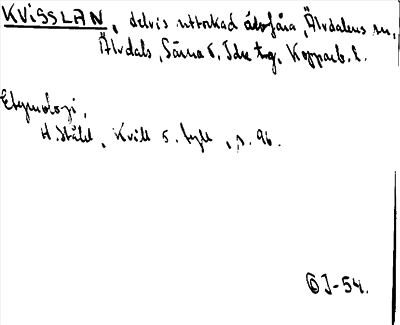 KVISSLAN, delvis uttorkad älvfåra, Älvdalens sn,
Älvdals, Särna o. Idre tg, Kopparb. l.
Etymologi,
H. Ståhl, Kvill o. tyll, s. 96.
ÖJ-54.